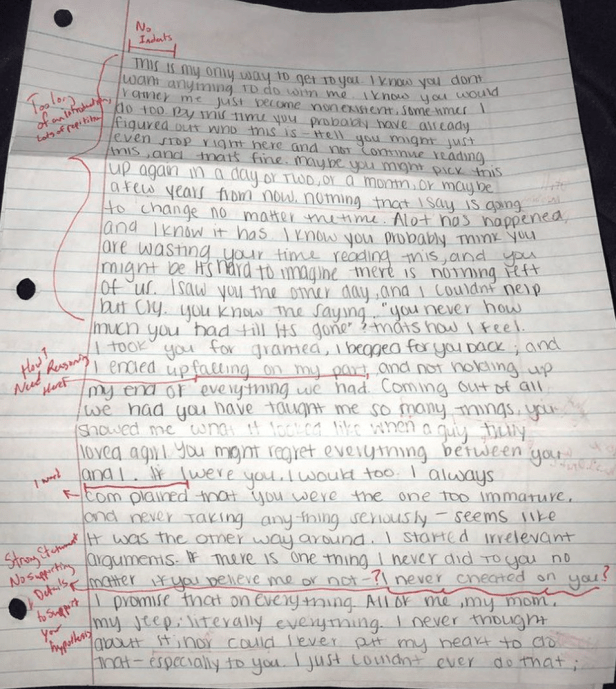 No
Indents
This is my only way to get to you. I know you dont
want anything to do with me. I know you would
rather me just become nonexistent, sometimes I
do too. By this time you probably have already
figured out who this is - Hell you might just
even stop right here and not continue reading
this, and thats fine. maybe you might pick this
up again in a day or two, or a month, or maybe
a few years from now. nothing that I say is going
to change no matter the time. Alot has happened,
and I know it has I know you probably think you
are wasting your time reading this, and you
might be Its hard to imagine there is nothing left
of us. I saw you the other day, and I couldnt help
but cry. you know the saying, "you never how
much you had till its gone" thats how I feel.
I took you for granted, I begged for you back, and
I ended up falling on my part, and not holding up
my end of everything we had. Coming out of all
we had you have taught me so many things, you
showed me what it looked like when a guy truly
loved a girl You might regret everything between you
and I. If I were you, I would too. I always
complained that you were the one too immature,
and never taking any-thing seriously - seems like
It was the other way around. I started irrelevant
arguments. If there is one thing I never did to you no
matter if you believe me or not -? I never cheated on you?
I promise that on everything. All of me, my mom,
my jeep, literally everything. I never thought
about it, nor could I ever put my heart to do
that - especially to you. I just couldnt ever do that;
Too long
of an introduction,
Lots of repetition
How?
Need Reasoning
Here!
1 word
Strong Statement
No supporting
Details
to support
your
hypothesis